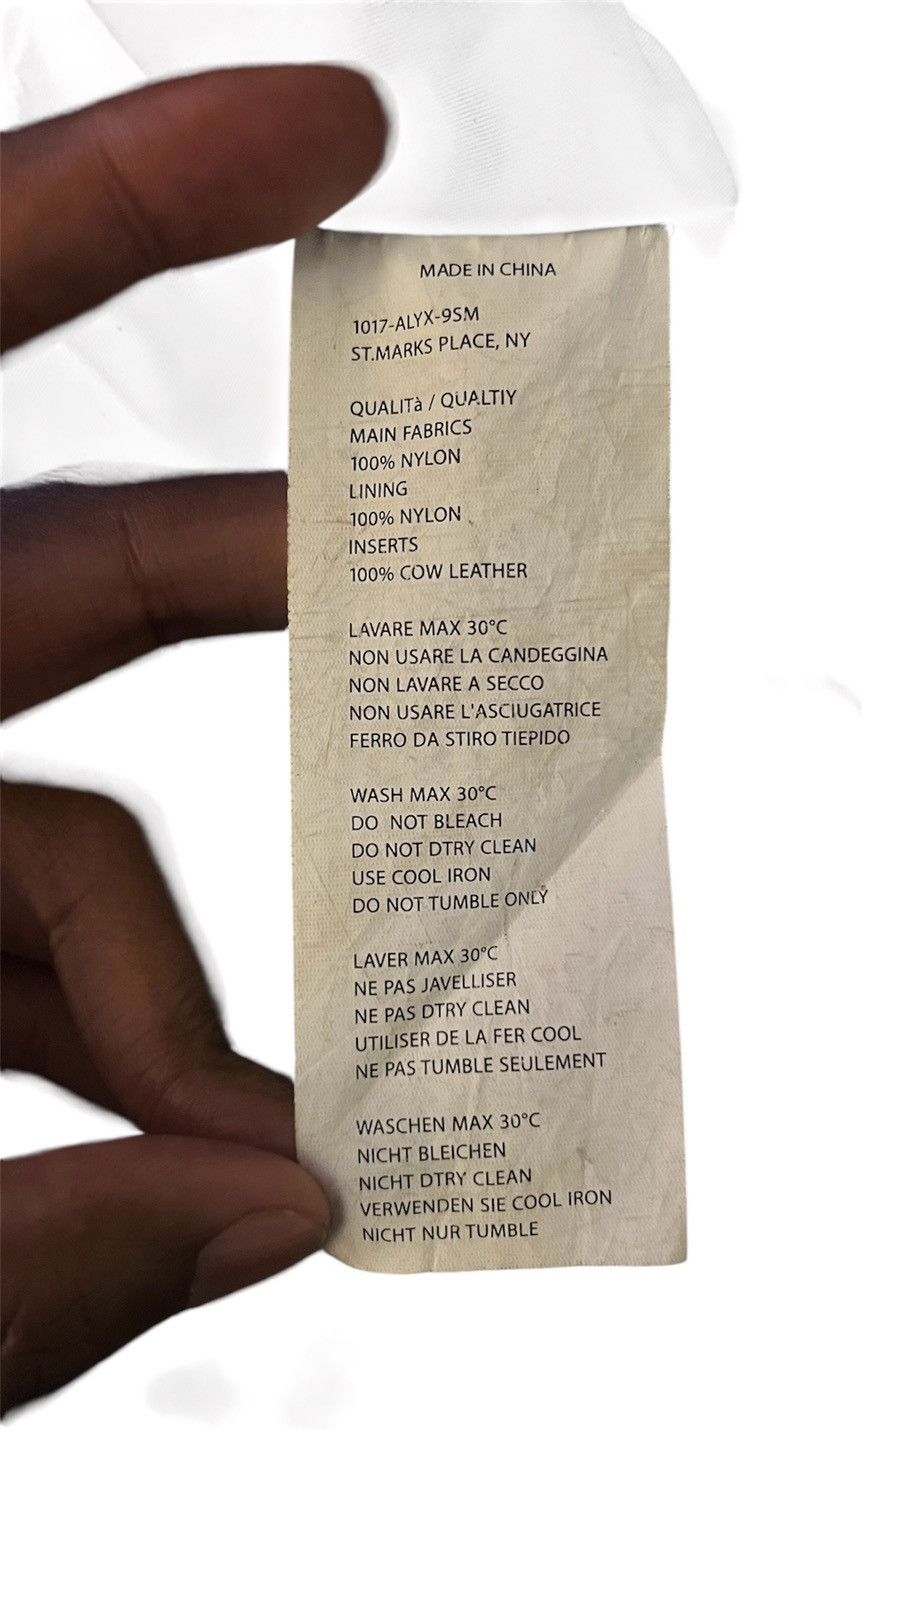 MADE IN CHINA
1017-ALYX-9SM
ST.MARKS PLACE, NY
QUALITà / QUALTIY
MAIN FABRICS
100% NYLON
LINING
100% NYLON
INSERTS
100% COW LEATHER
LAVARE MAX 30°C
NON USARE LA CANDEGGINA
NON LAVARE A SECCO
NON USARE L'ASCIUGATRICE
FERRO DA STIRO TIEPIDO
WASH MAX 30°C
DO NOT BLEACH
DO NOT DTRY CLEAN
USE COOL IRON
DO NOT TUMBLE ONLY
LAVER MAX 30°C
NE PAS JAVELLISER
NE PAS DTRY CLEAN
UTILISER DE LA FER COOL
NE PAS TUMBLE SEULEMENT
WASCHEN MAX 30°C
NICHT BLEICHEN
NICHT DTRY CLEAN
VERWENDEN SIE COOL IRON
NICHT NUR TUMBLE